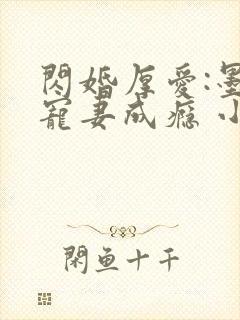 閃婚厚愛:墨
寵妻成癮 小
閑魚十千